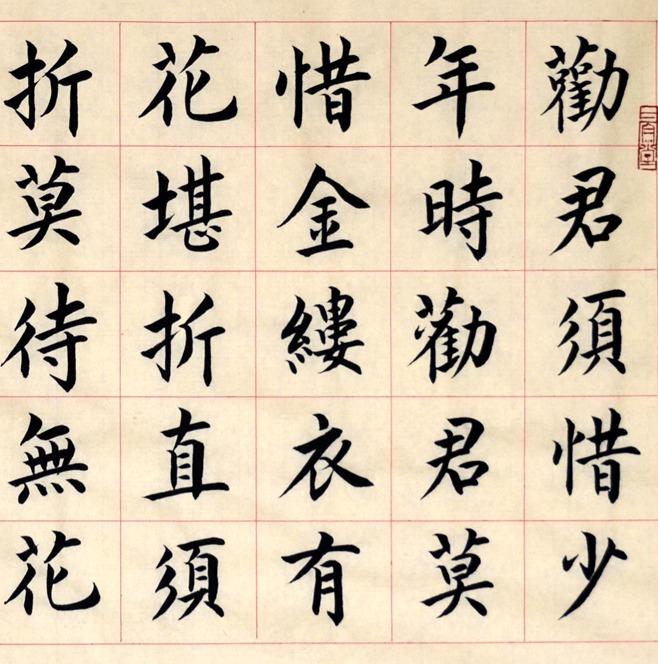 勸君須惜少
年時勸君莫
惜金縷衣有
花堪折直須
折莫待無花